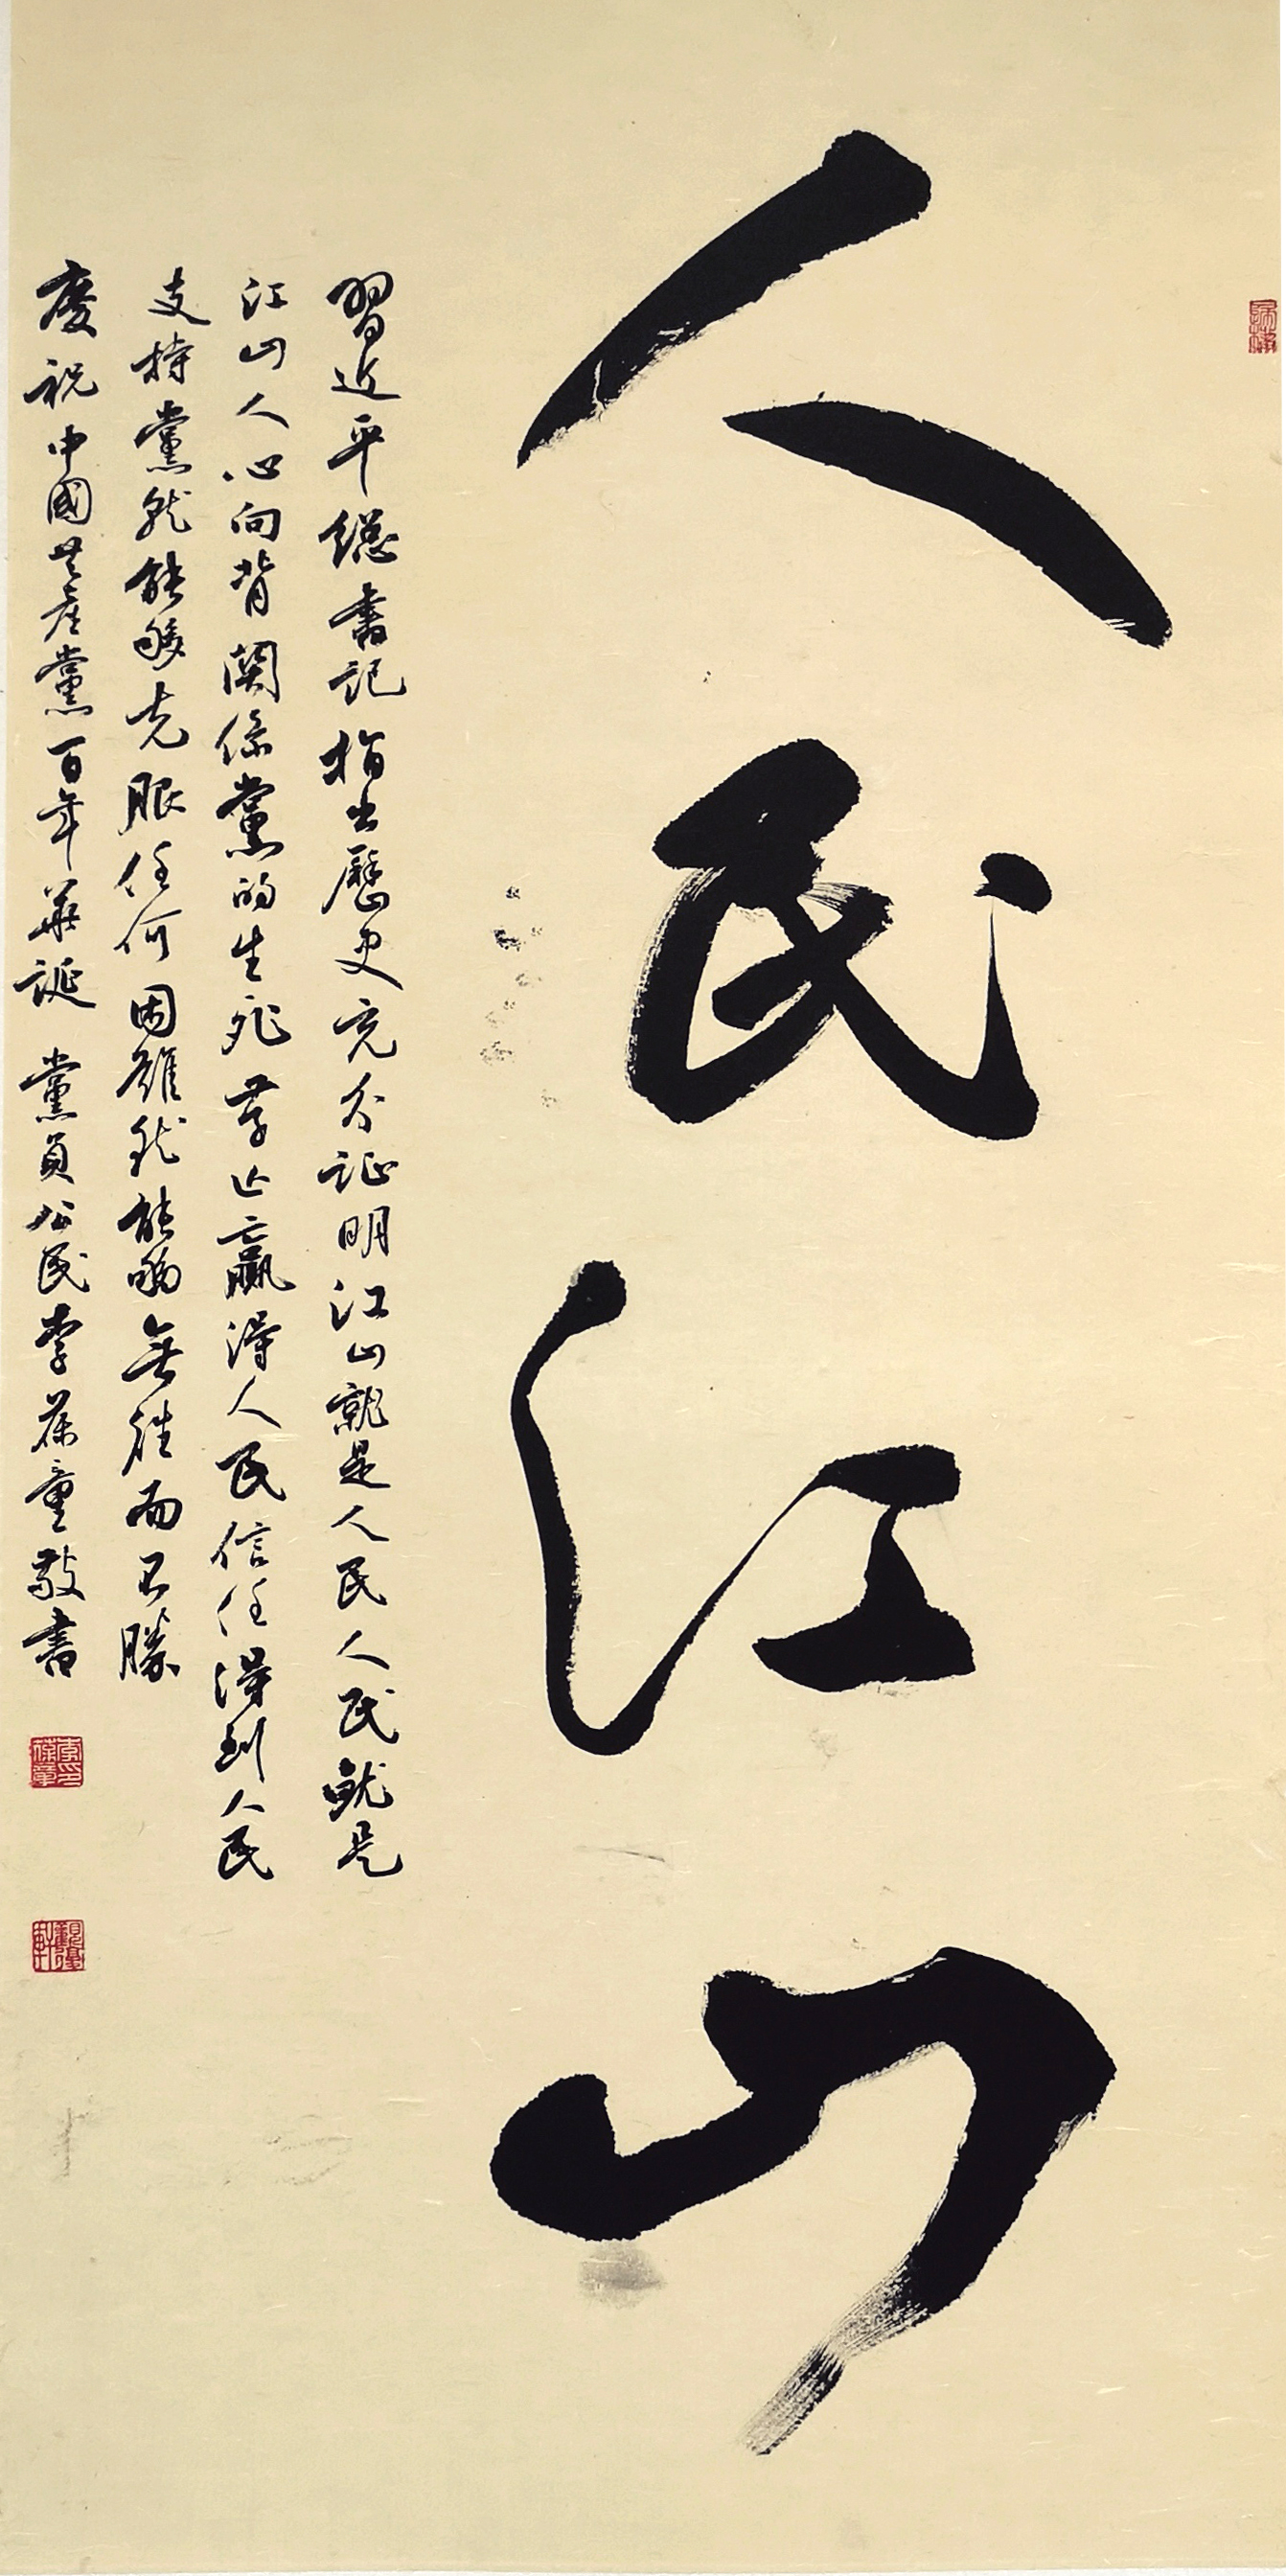 人民江山
習近平總書記指出歷史充分証明江山就是人民人民就是
江山人心向背關係黨的生死存亡贏得人民信任得到人民
支持黨就能够克服任何困難就能够無往而不勝
慶祝中國共產黨百年華誕 黨員公民李葆童敬書
李印葆童